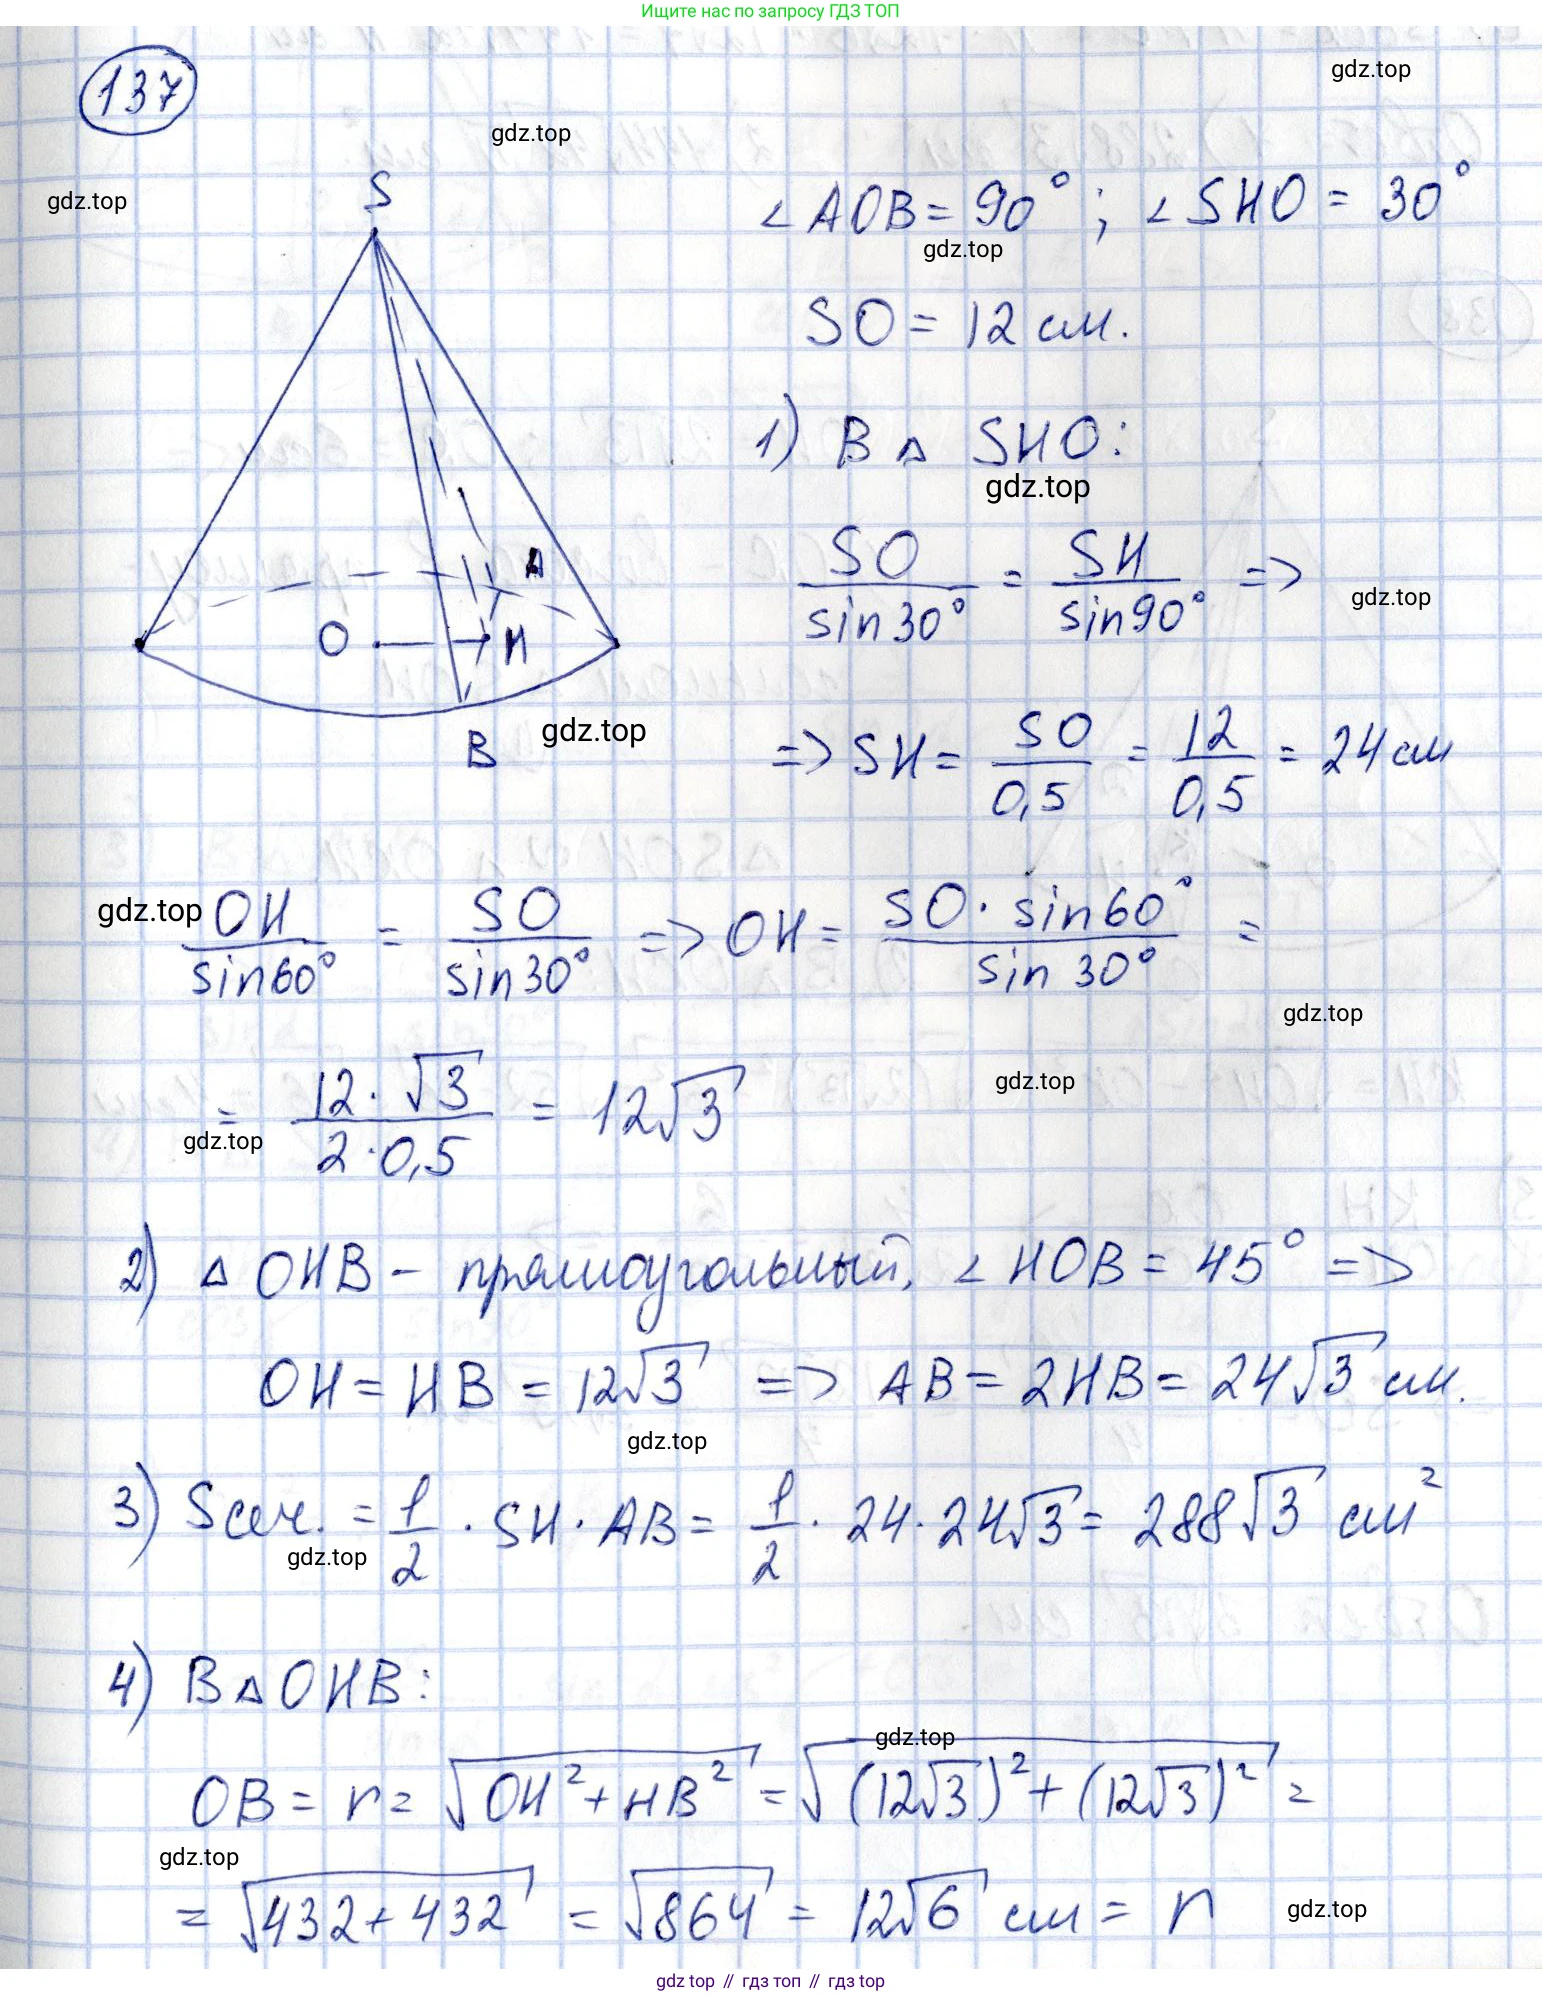 Ищите нас по запросу ГДЗ ТОП
137
gdz.top
gdz.top
gdz.top
S
∠AOB = 90°; ∠SHO = 30°
gdz.top
SO = 12 см.
1) В △ SHO:
gdz.top
SO/sin30° = SH/sin90° =>
gdz.top
A
O
H
B
gdz.top
=> SH = SO/0,5 = 12/0,5 = 24 см
gdz.top
OH/sin60° = SO/sin30° => OH = SO · sin60°/sin 30° =
gdz.top
gdz.top
= 12·√3/2·0,5 = 12√3
gdz.top
2) △ OHB - прямоугольный, ∠HOB = 45° =>
OH = HB = 12√3 => AB = 2HB = 24√3 см.
gdz.top
3) Sсеч. = 1/2 · SH · AB = 1/2 · 24 · 24√3 = 288√3 см²
gdz.top
4) В △ OHB:
gdz.top
OB = r = √(OH² + HB²) = √((12√3)² + (12√3)²) =
gdz.top
= √(432 + 432) = √864 = 12√6 см = r
gdz.top
gdz.top // гдз топ // gdz.top